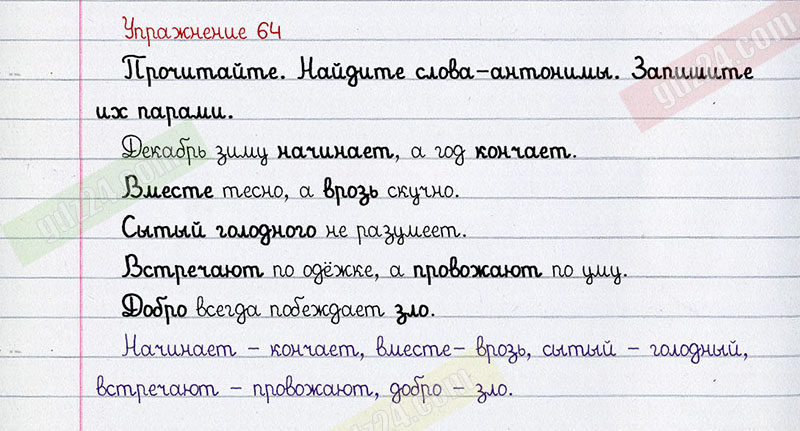 Упражнение 64
Прочитайте. Найдите слова-антонимы. Запишите
их парами.
Декабрь зиму начинает, а год кончает.
Вместе тесно, а врозь скучно.
Сытый голодного не разумеет.
Встречают по одёжке, а провожают по уму.
Добро всегда побеждает зло.
Начинает – кончает, вместе– врозь, сытый – голодный,
встречают – провожают, добро – зло.
gdz24.com
gdz24.com
gdz24.com